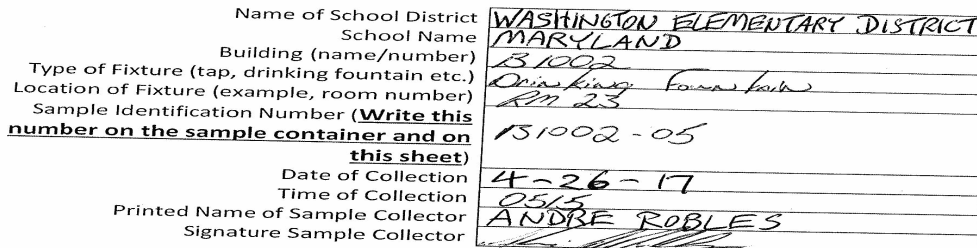 Name of School District WASHINGTON ELEMENTARY DISTRICT
School Name MARYLAND
Building (name/number) B1002
Type of Fixture (tap, drinking fountain etc.) Drinking Fountain
Location of Fixture (example, room number) RM 23
Sample Identification Number (Write this
number on the sample container and on B1002-05
this sheet)
Date of Collection 4-26-17
Time of Collection 0515
Printed Name of Sample Collector ANDRE ROBLES
Signature Sample Collector